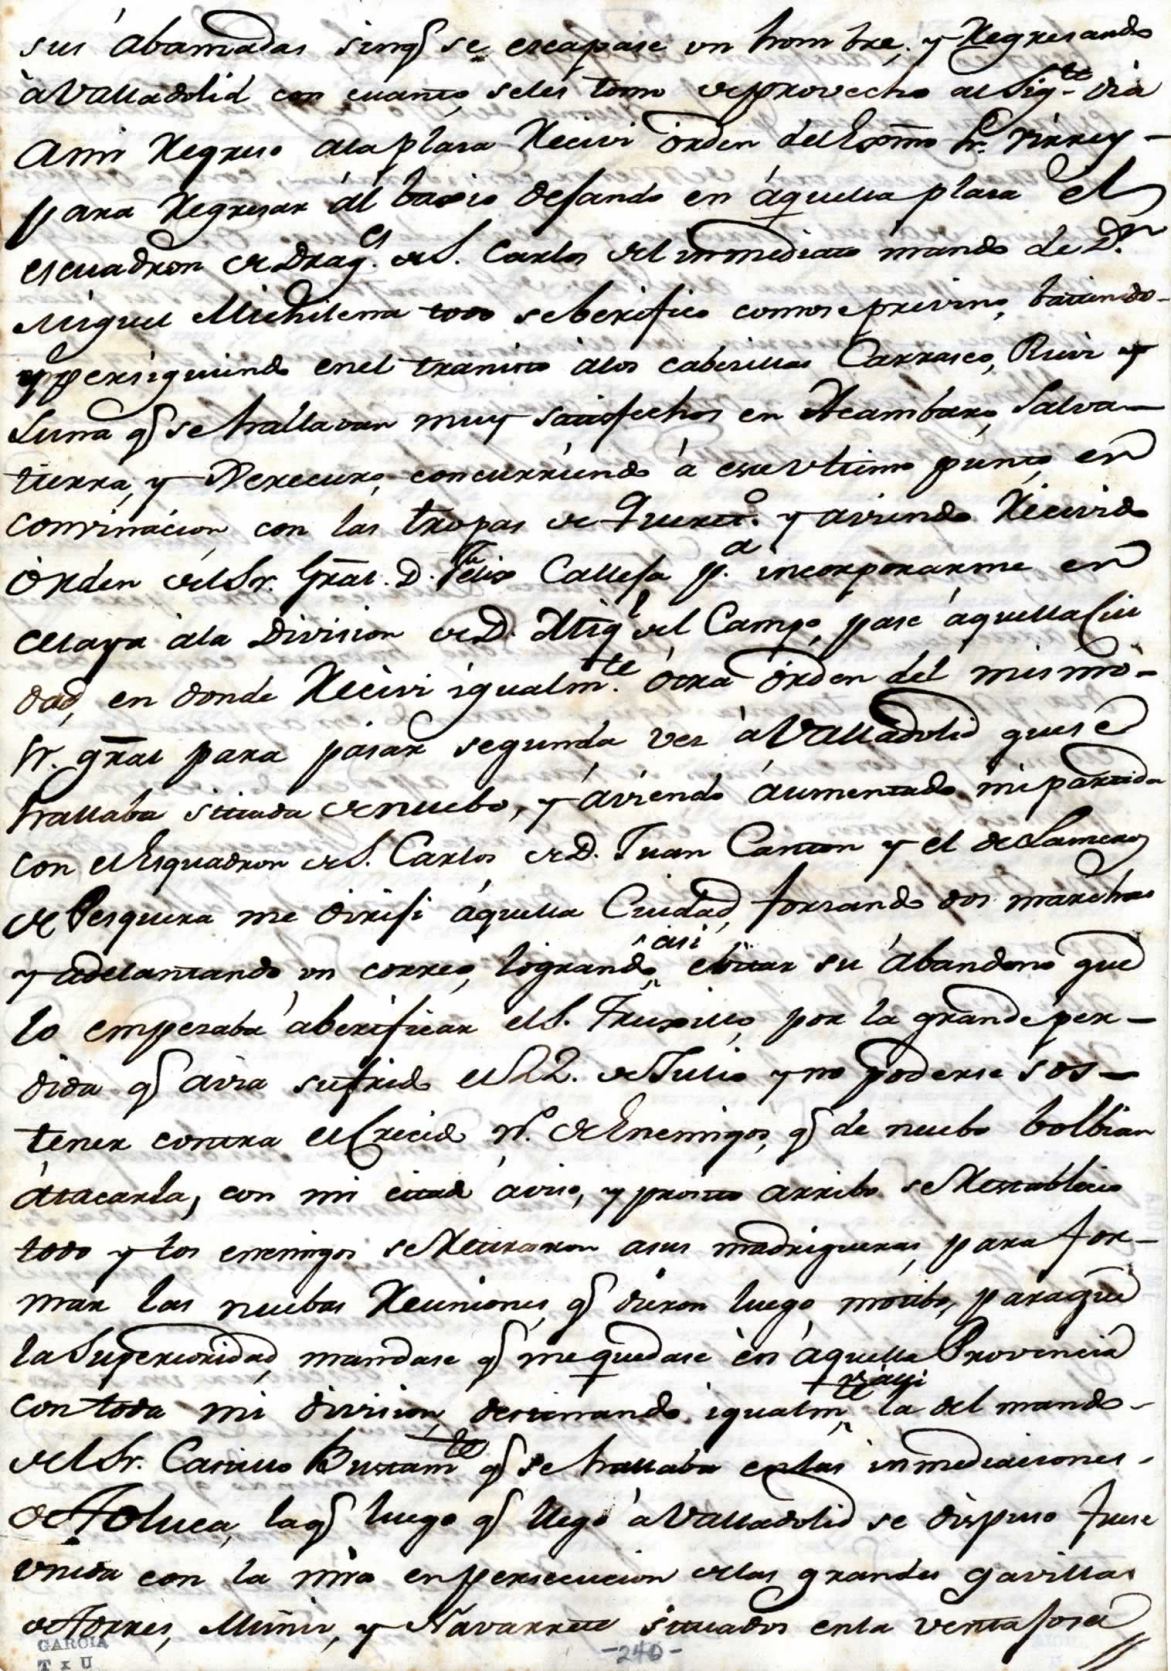 sus abanzadas sinq̃ se escapase un hombre, y Regresando
à Valladolid con cuanto seles tomo de provecho al Sigte. dia
Ami Regreso ala plasa Recivi orden del Exmo Sr. Virrey –
para Regresar ál baxio dejando en áquella plasa el
escuadron de Drags. de S. Carlos del inmediato mando de Dn.
Miguel Michilena todo seberifico como se previno, batiendo–
y persiguiendo enel transito álos cabesillas Carrasco, Ruvi y
Luna q̃ se hallavan muy satisfechos en Acambaro, Salva–
tierra, y Yerecuro, concurriendo á este vltimo punto, en
convinacion con las tropas de Quereto. y aviendo Recivido
Orden del Sr. Gral. D. Felix Calleja pa. incorporarme en
Celaya ála Division de D. Migl. del Campo, pasé áquella Ciu
dad, en donde Recivi igualmte. ótra órden del mismo–
Sr. gral para pasar segunda ves á Valladolid que se
hallaba sitiada de nuebo, y áviendo áumentado mi partida
con el Esquadron de S. Carlos de D. Juan Canton y el de Lanceros
de Pesquera me dirijí áquella Ciudad, forsando dos marchas
y adelantando un correo, logrando asi ebitar su ábandono que
lo empesaba áberificar el S. Truxillo, por la grande per–
dida q̃ avia sufrido el 22. de Julio y no poderse sos–
tener contra el Crecido no. de Enemigos, q̃ de nuebo bolbian
átacarla, con mi citado áviso, y pronto arribo se Restablecio
todo y los enemigos se Retiraron asus madrigueras, para for–
mar las nuebas Reuniones, q̃ dieron luego motibo, paraque
la Superioridad, mandase q̃ me quedase èn áquella Provincia
con toda mi division, destinando igualmte allí la del mando–
del Sr. Castillo Bustamte q̃ se hallaba enlas inmediaciones–
de Toluca, la q̃ luego q̃ llegó á Valladolid se dispuso fuese
vnida con la mia en persecucion de las grandes gavillas
de Torres, Muñis, y Navarrete situados enla ventajosa
GARCIA
-240-